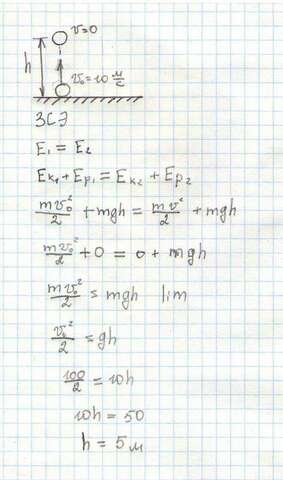 v=0
h
v₀=10 м/с
ЗСЭ
E₁ = E₂
Eк₁+Ep₁ = Eк₂+Ep₂
mv₀²/2 + mgh = mv²/2 + mgh
mv₀²/2 + 0 = 0 + mgh
mv₀²/2 = mgh |:m
v₀²/2 = gh
100/2 = 10h
10h = 50
h = 5м